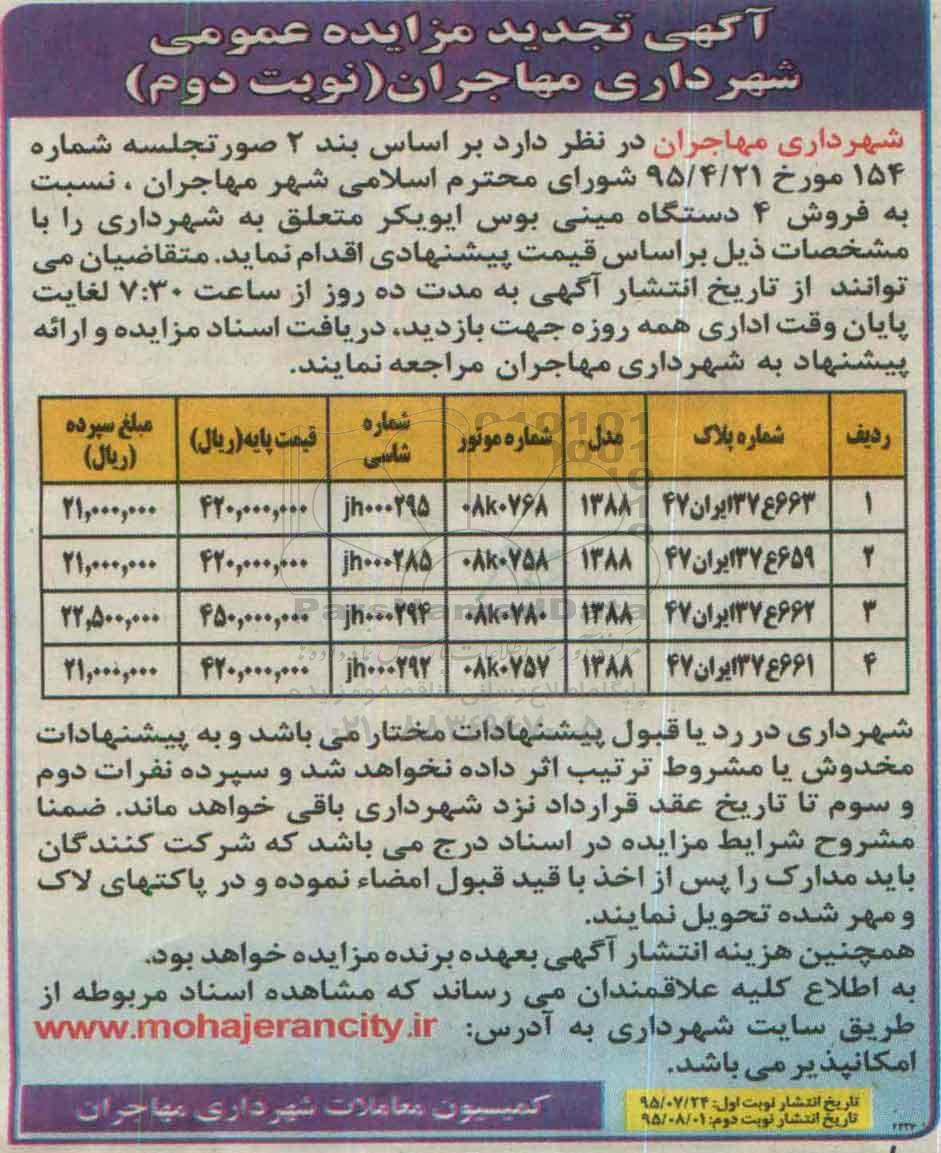 آگهی تجدید مزایده عمومی
شهرداری مهاجران(نوبت دوم)
شهرداری مهاجران در نظر دارد بر اساس بند ۲ صورتجلسه شماره
۱۵۴ مورخ ۹۵/۴/۲۱ شورای محترم اسلامی شهر مهاجران ، نسبت
به فروش ۴ دستگاه مینی بوس ایویکر متعلق به شهرداری را با
مشخصات ذیل براساس قیمت پیشنهادی اقدام نماید. متقاضیان می
توانند از تاریخ انتشار آگهی به مدت ده روز از ساعت ۷:۳۰ لغایت
پایان وقت اداری همه روزه جهت بازدید، دریافت اسناد مزایده و ارائه
پیشنهاد به شهرداری مهاجران مراجعه نمایند.
ردیف شماره پلاک مدل شماره موتور شماره شاسی قیمت پایه(ریال) مبلغ سپرده (ریال)
۱ ۶۶۳ع۳۷ایران۴۷ ۱۳۸۸ ۰۸k۰۷۶۸ jh۰۰۰۲۹۵ ۴۲۰,۰۰۰,۰۰۰ ۲۱,۰۰۰,۰۰۰
۲ ۶۵۹ع۳۷ایران۴۷ ۱۳۸۸ ۰۸k۰۷۵۸ jh۰۰۰۲۸۵ ۴۲۰,۰۰۰,۰۰۰ ۲۱,۰۰۰,۰۰۰
۳ ۶۶۲ع۳۷ایران۴۷ ۱۳۸۸ ۰۸k۰۷۸۰ jh۰۰۰۲۹۴ ۴۵۰,۰۰۰,۰۰۰ ۲۲,۵۰۰,۰۰۰
۴ ۶۶۱ع۳۷ایران۴۷ ۱۳۸۸ ۰۸k۰۷۵۷ jh۰۰۰۲۹۲ ۴۲۰,۰۰۰,۰۰۰ ۲۱,۰۰۰,۰۰۰
ParsNamadData
شهرداری در رد یا قبول پیشنهادات مختار می باشد و به پیشنهادات
مخدوش یا مشروط ترتیب اثر داده نخواهد شد و سپرده نفرات دوم
و سوم تا تاریخ عقد قرارداد نزد شهرداری باقی خواهد ماند. ضمنا
مشروح شرایط مزایده در اسناد درج می باشد که شرکت کنندگان
باید مدارک را پس از اخذ با قید قبول امضاء نموده و در پاکتهای لاک
و مهر شده تحویل نمایند.
همچنین هزینه انتشار آگهی بعهده برنده مزایده خواهد بود.
به اطلاع کلیه علاقمندان می رساند که مشاهده اسناد مربوطه از
طریق سایت شهرداری به آدرس: www.mohajerancity.ir
امکانپذیر می باشد.
تاریخ انتشار نوبت اول: ۹۵/۰۷/۲۴
تاریخ انتشار نوبت دوم: ۹۵/۰۸/۰۱
کمیسیون معاملات شهرداری مهاجران